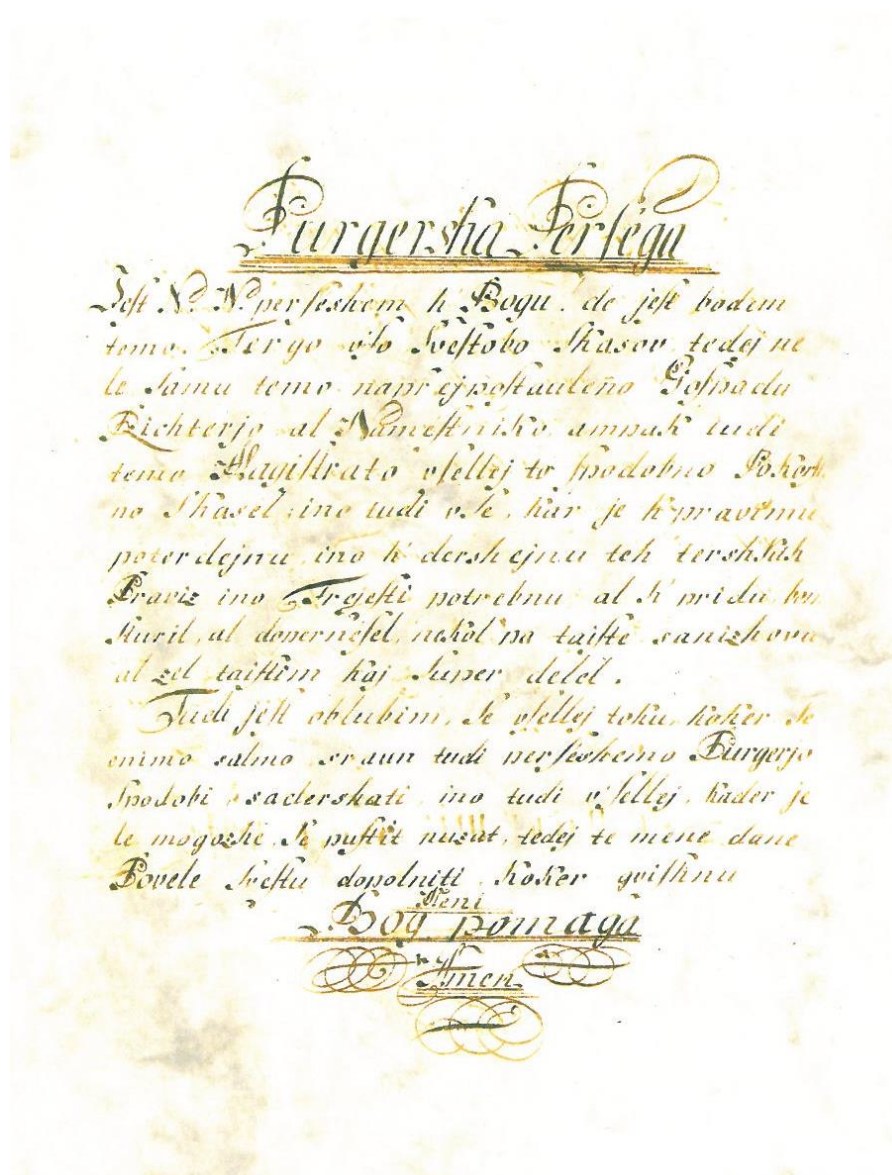 Purgerska Perſega
Jeſt N. N. perſeshem k Bogu, de jeſt bodem
temo Tergo vſo Sveſtobo ſkasov, tedej ne
le ſamu temo naprejpoſtauleno Goſpodu
Richterjo al Nameſtniko ampak tudi
temo Magiſtrato vſellej to ſpodobno Pokor
no ſkasel, ino tudi vſe, kar je k' pravimu
poterdejnu, ino k' dershejnu teh tershkih
Praviz ino Frejeſti potrebnu al k' pridu bom
ſturil, al doperneſel, nekol pa taiſte sanizhova
al zel taiſtim kaj ſuper delel.
Tudi jeſt oblubim, ſe vſellej toku, koker ſe
enimo salmo sraun tudi perſeshemo Purgerjo
ſpodobi sadershati, ino tudi vſellej, kader je
le mogozhe, ſe puſtit nuzat, tedej te mene dane
Povele ſveſtu dopolniti, koker gviſhnu
Meni
Bog pomaga
Amen